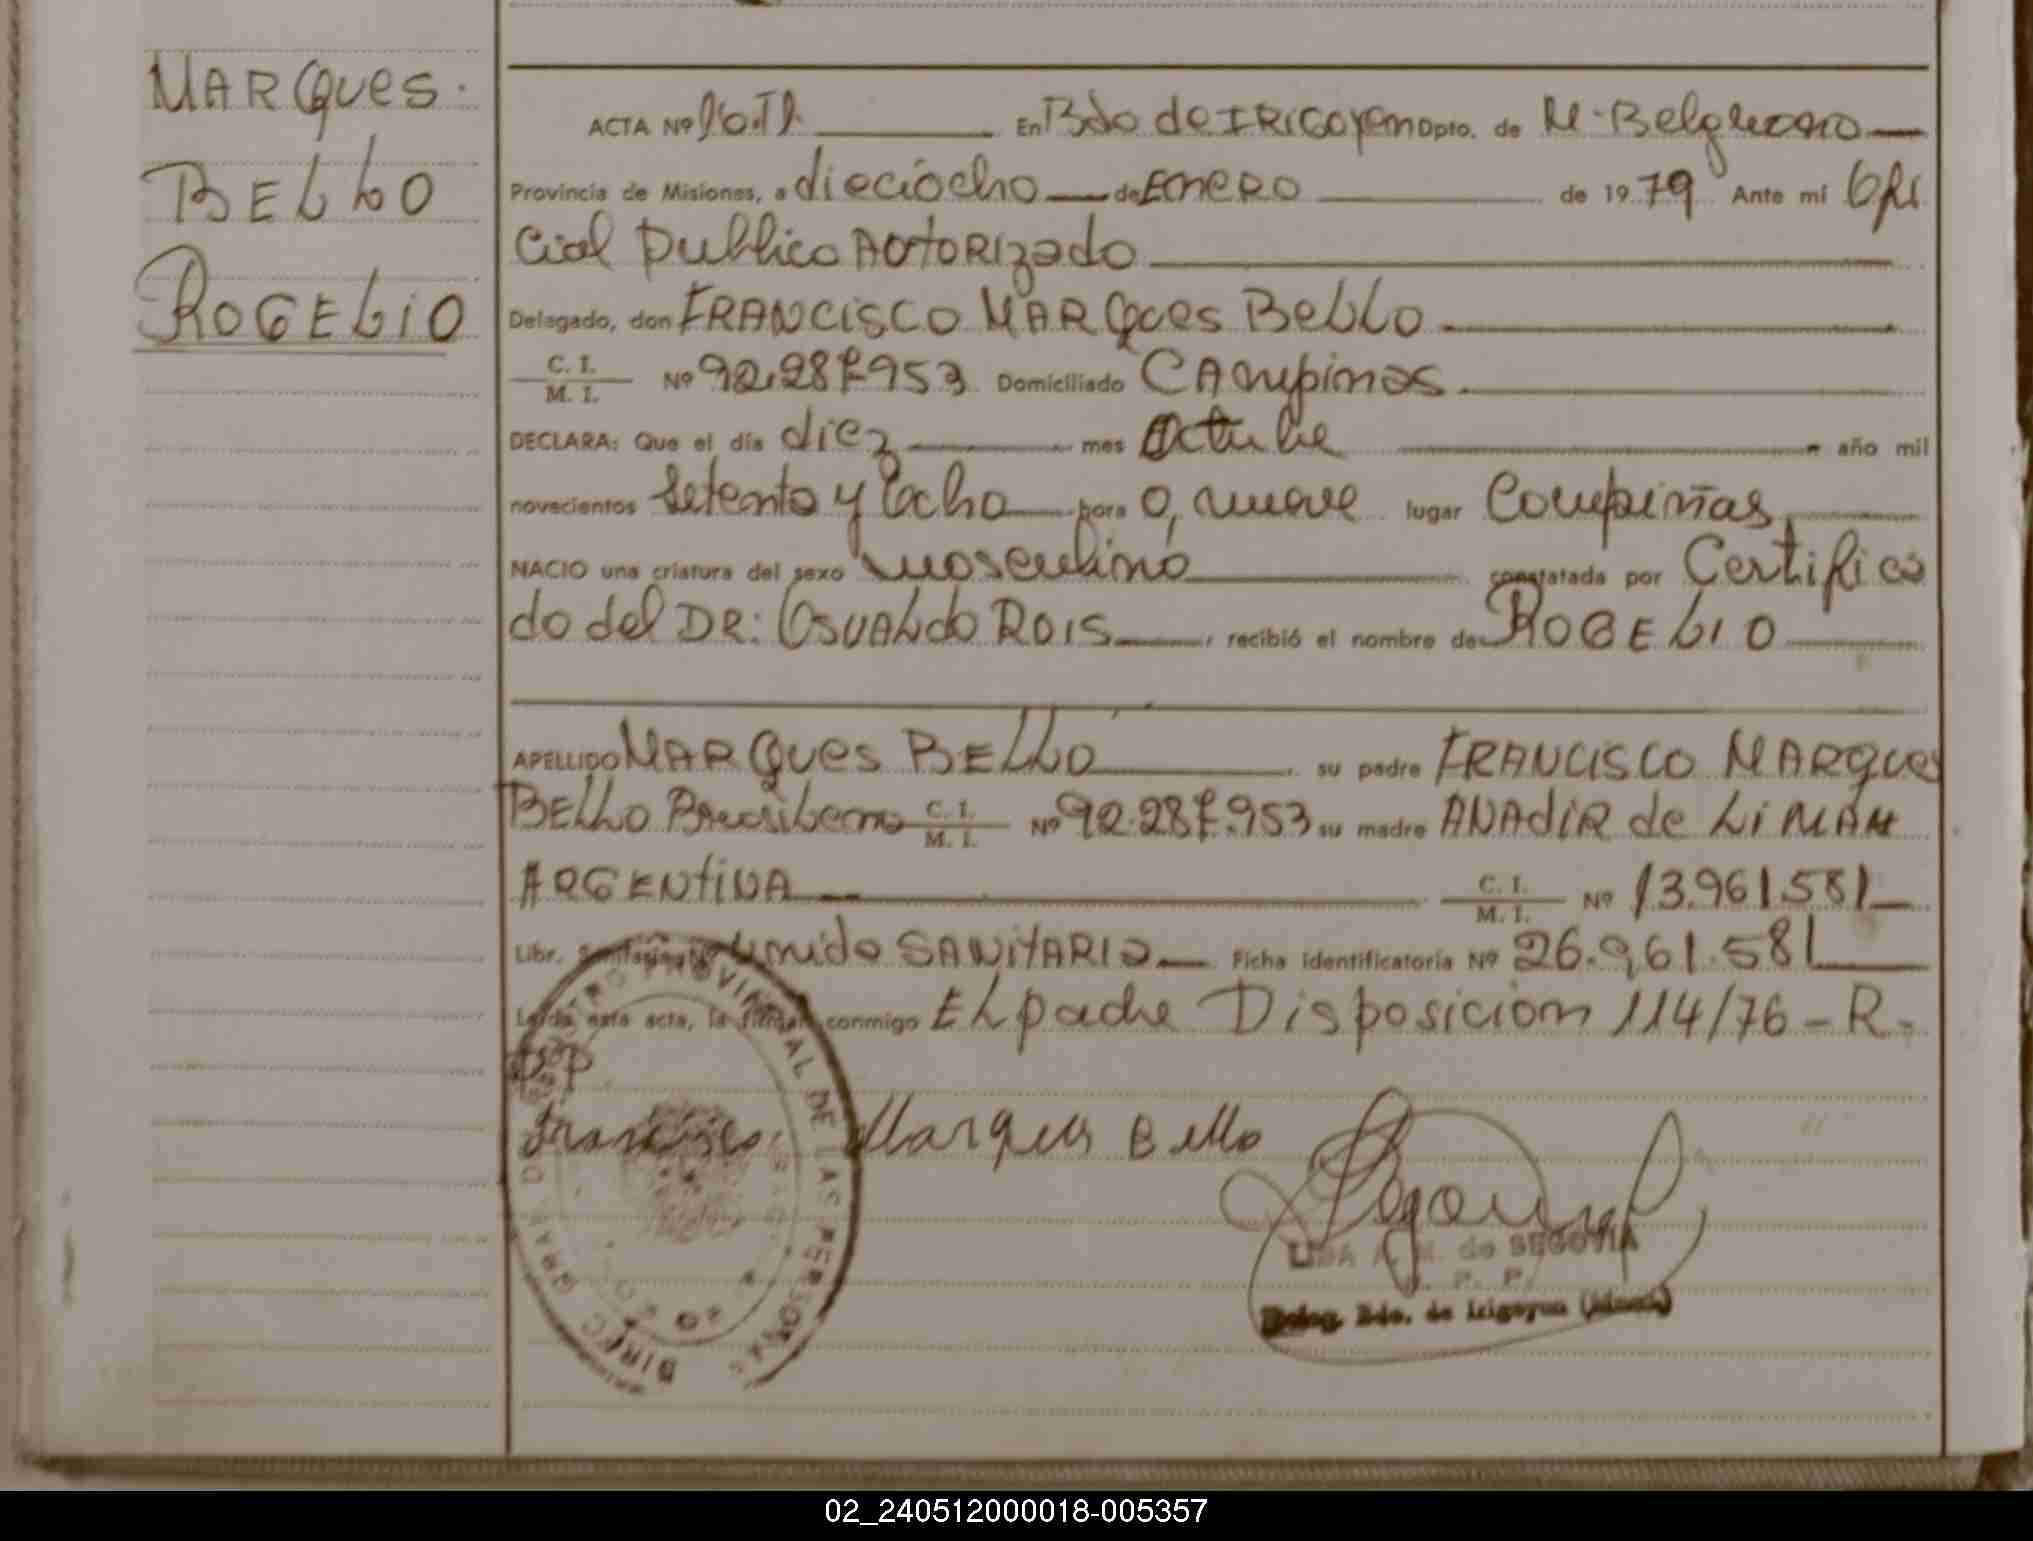 MARQues.
BELLO
ROGELIO
ACTA Nº 16.TI. En Bdo de IRIGOYEN Dpto. de M. Belgrano
Provincia de Misiones, a dieciocho de ENERO de 1979 Ante mí Ofi
cial Publico AUTORIZADO
Delegado, don FRANCISCO MARQUES BELLO
C. I.
M. I. Nº 92.287.953 Domiciliado CAmpinas
DECLARA: Que el día diez mes Octubre año mil
novecientos setenta y ocho hora 0, nueve lugar Campinas
NACIO una criatura del sexo masculino constatada por Certifica
do del DR: OSVALDO ROIS, recibió el nombre de ROGELIO
APELLIDO MARQues BELLO su padre FRANCISCO MARQues
BELLO Brasilero C. I. M. I. Nº 92.287.953 su madre ANADIR de LIMAN
ARGENTINA C. I. M. I. Nº 13.961.581
Libr. Sanitaria Nº Unida SANITARIA Ficha identificatoria Nº 26.961.581
Leída esta acta, la firman conmigo EL padre Disposicion 114/76-R-
PP.
Francisco Marques Bello
DIREC GRAL PROVINCIAL DE LAS PERSONAS
de SEGOVIA
P. P.
Deleg. Bdo. de Irigoyen (Mnes.)
02_240512000018-005357